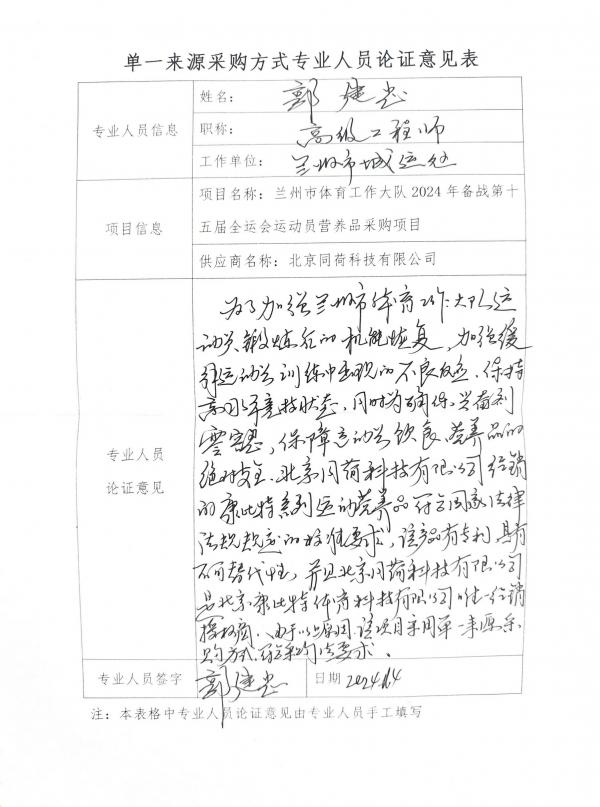 单一来源采购方式专业人员论证意见表
专业人员信息
姓名：郭建忠
职称：高级工程师
工作单位：兰州市城运处
项目信息
项目名称：兰州市体育工作大队2024年备战第十
五届全运会运动员营养品采购项目
供应商名称：北京同荷科技有限公司
专业人员
论证意见
为了加强兰州市体育工作大队运
动员锻炼后的机能恢复，加强缓
解运动员训练中出现的不良反应，保持
高水平竞技状态，同时为确保兴奋剂
零容忍，保障运动员饮食、营养品的
绝对安全。北京同荷科技有限公司经销
的康比特系列运动营养品符合国家法律
法规规定的标准要求，该产品有专利，具有
不可替代性，并且北京同荷科技有限公司
是北京康比特体育科技有限公司唯一经销
授权商，由于以上原因该项目采用单一来源采
购方式符合采购法要求。
专业人员签字
郭建忠
日期
注：本表格中专业人员论证意见由专业人员手工填写